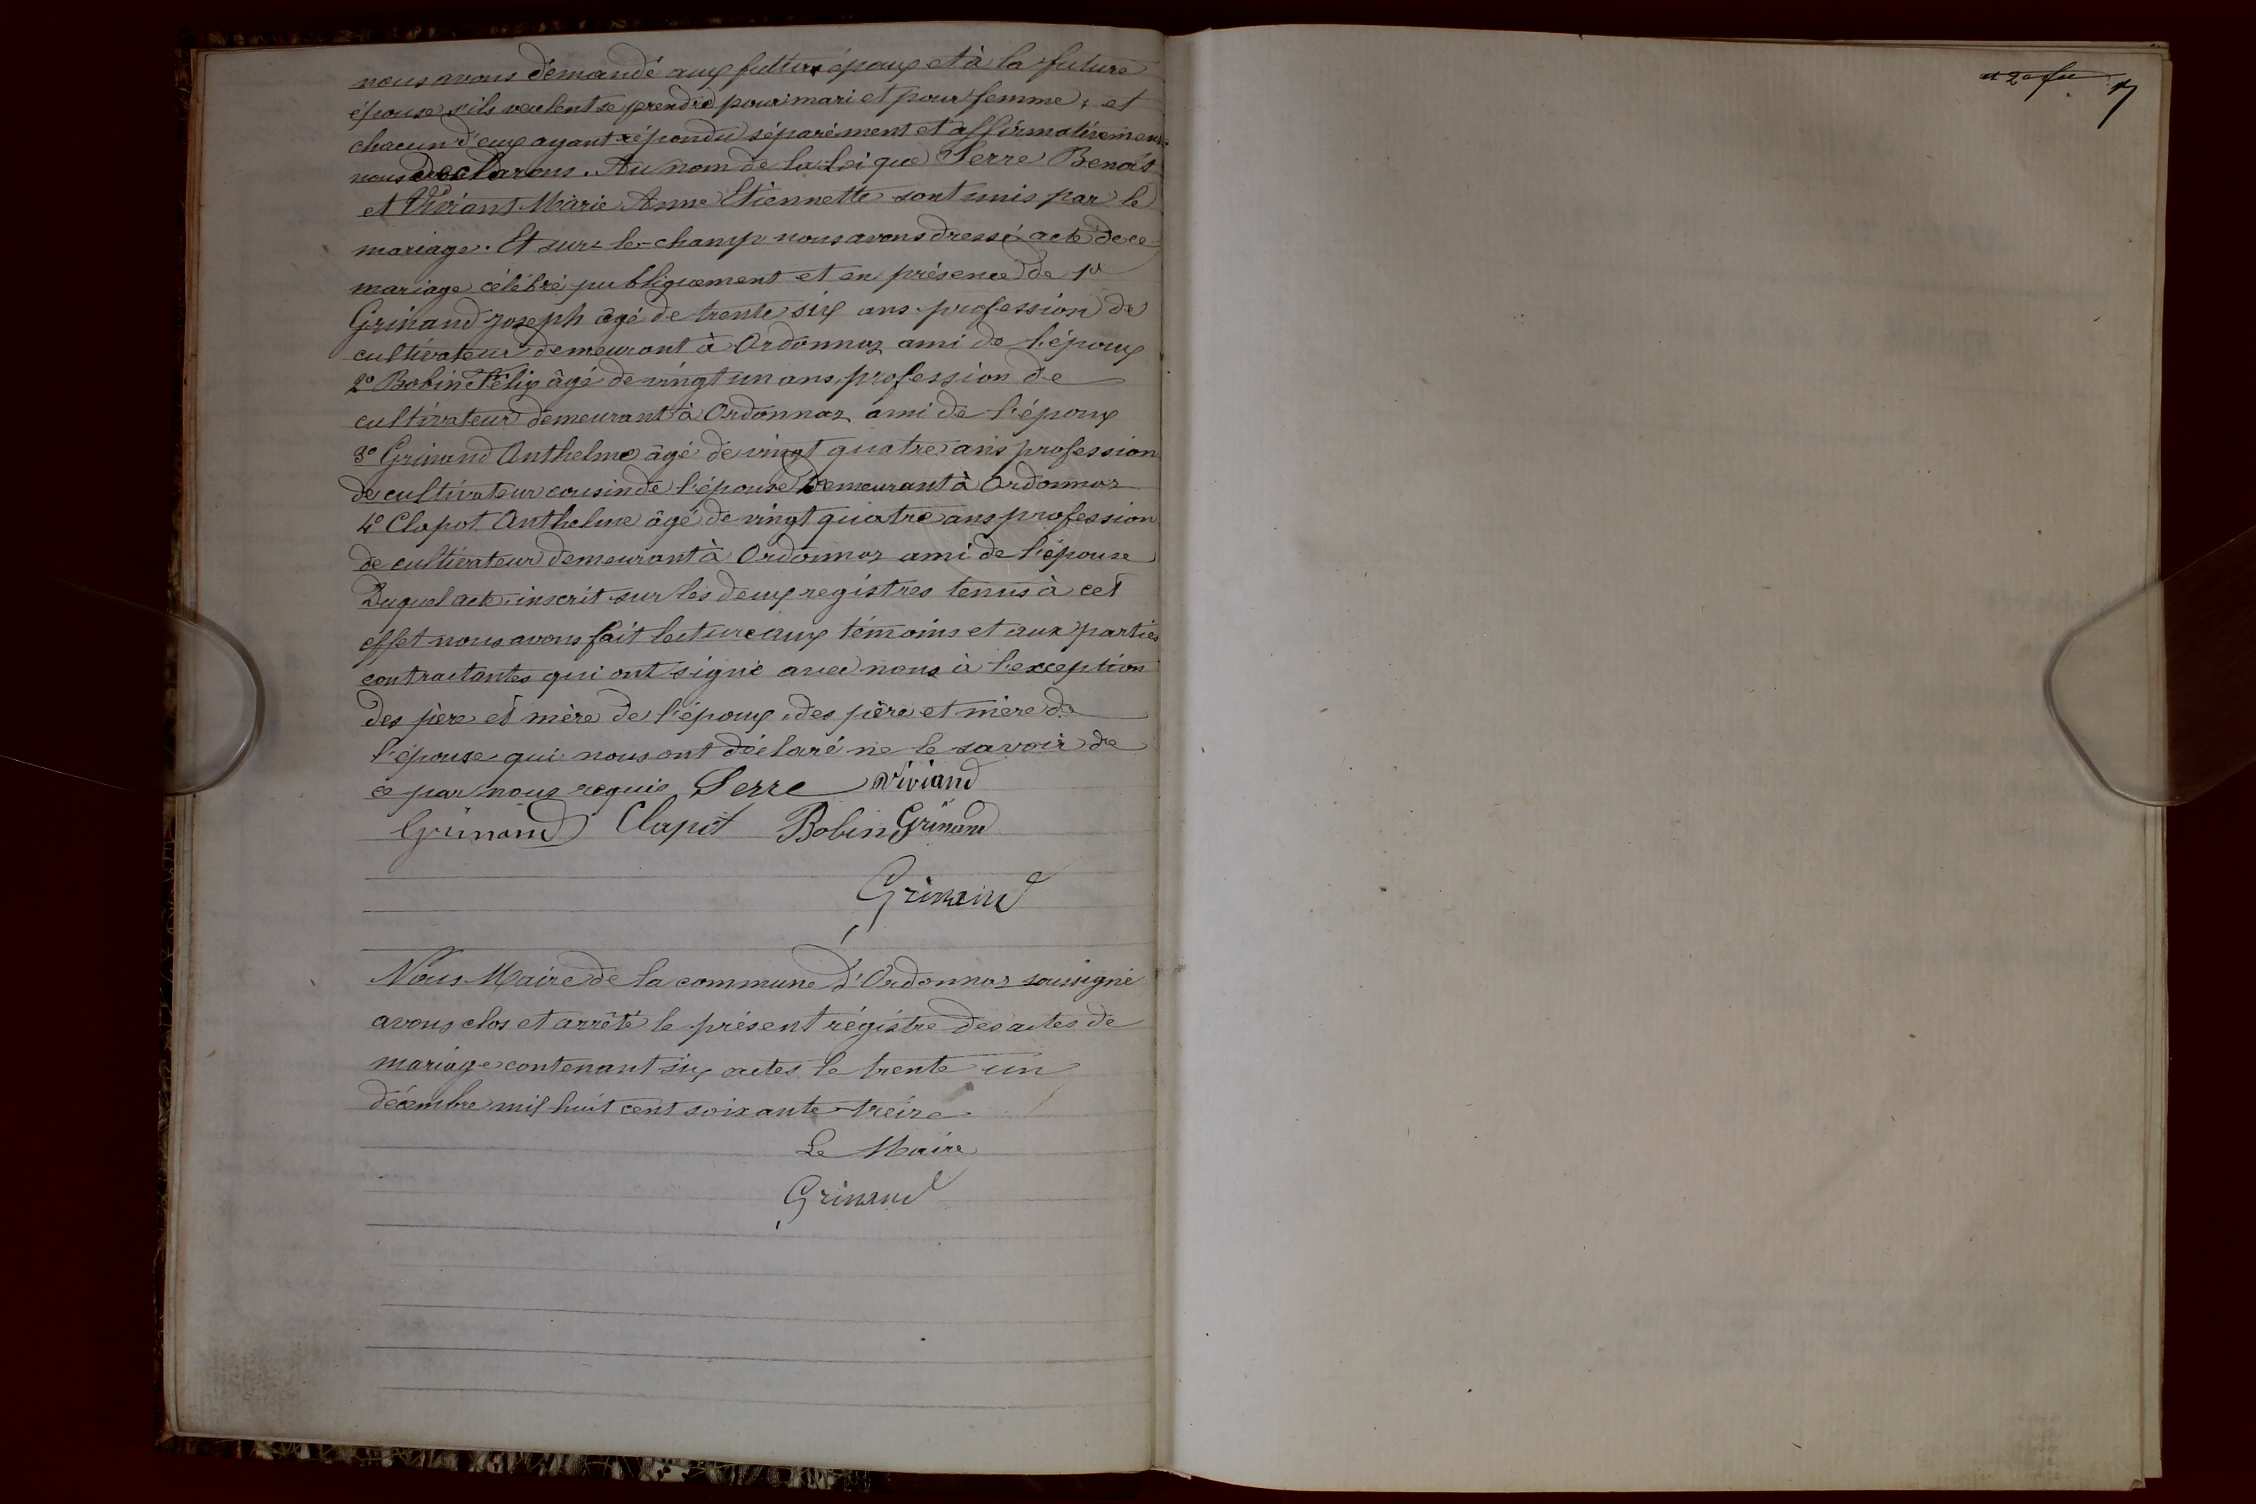 nous avons demandé aux futur époux et à la future
épouse s'ils veulent se prendre pour mari et pour femme ; et
chacun d'eux ayant répondu séparément et affirmativement
nous déclarons. Au nom de la Loi que Serre Benoît
et Viviant Marie Anne Etiennette sont unis par le
mariage. Et sur-le-champ nous avons dressé acte de ce
mariage célébré publiquement et en présence de 1º
Grinand Joseph âgé de trente six ans profession de
cultivateur demeurant à Ordonnaz ami de l'époux
2º Bobin Félix âgé de vingt un ans, profession de
cultivateur demeurant à Ordonnaz ami de l'époux
3º Grinand Anthelme âgé de vingt quatre ans profession
de cultivateur cousin de l'épouse demeurant à Ordonnaz
4º Clapot Anthelme âgé de vingt quatre ans profession
de cultivateur demeurant à Ordonnaz ami de l'épouse
Duquel acte, inscrit sur les deux registres tenus à cet
effet nous avons fait lecture aux témoins et aux parties
contractantes qui ont signé avec nous à l'exception
des père et mère de l'époux, des père et mère de
l'épouse qui nous ont déclaré ne le savoir de
ce par nous requis Serre Viviand
Grinand Clapot Bobin Grinand
Grinand
Nous Maire de la commune d'Ordonnaz soussigné
avons clos et arrêté le présent régistre des actes de
mariage contenant six actes le trente un
décembre mil huit cent soixante-treize.
Le Maire
Grinand
7